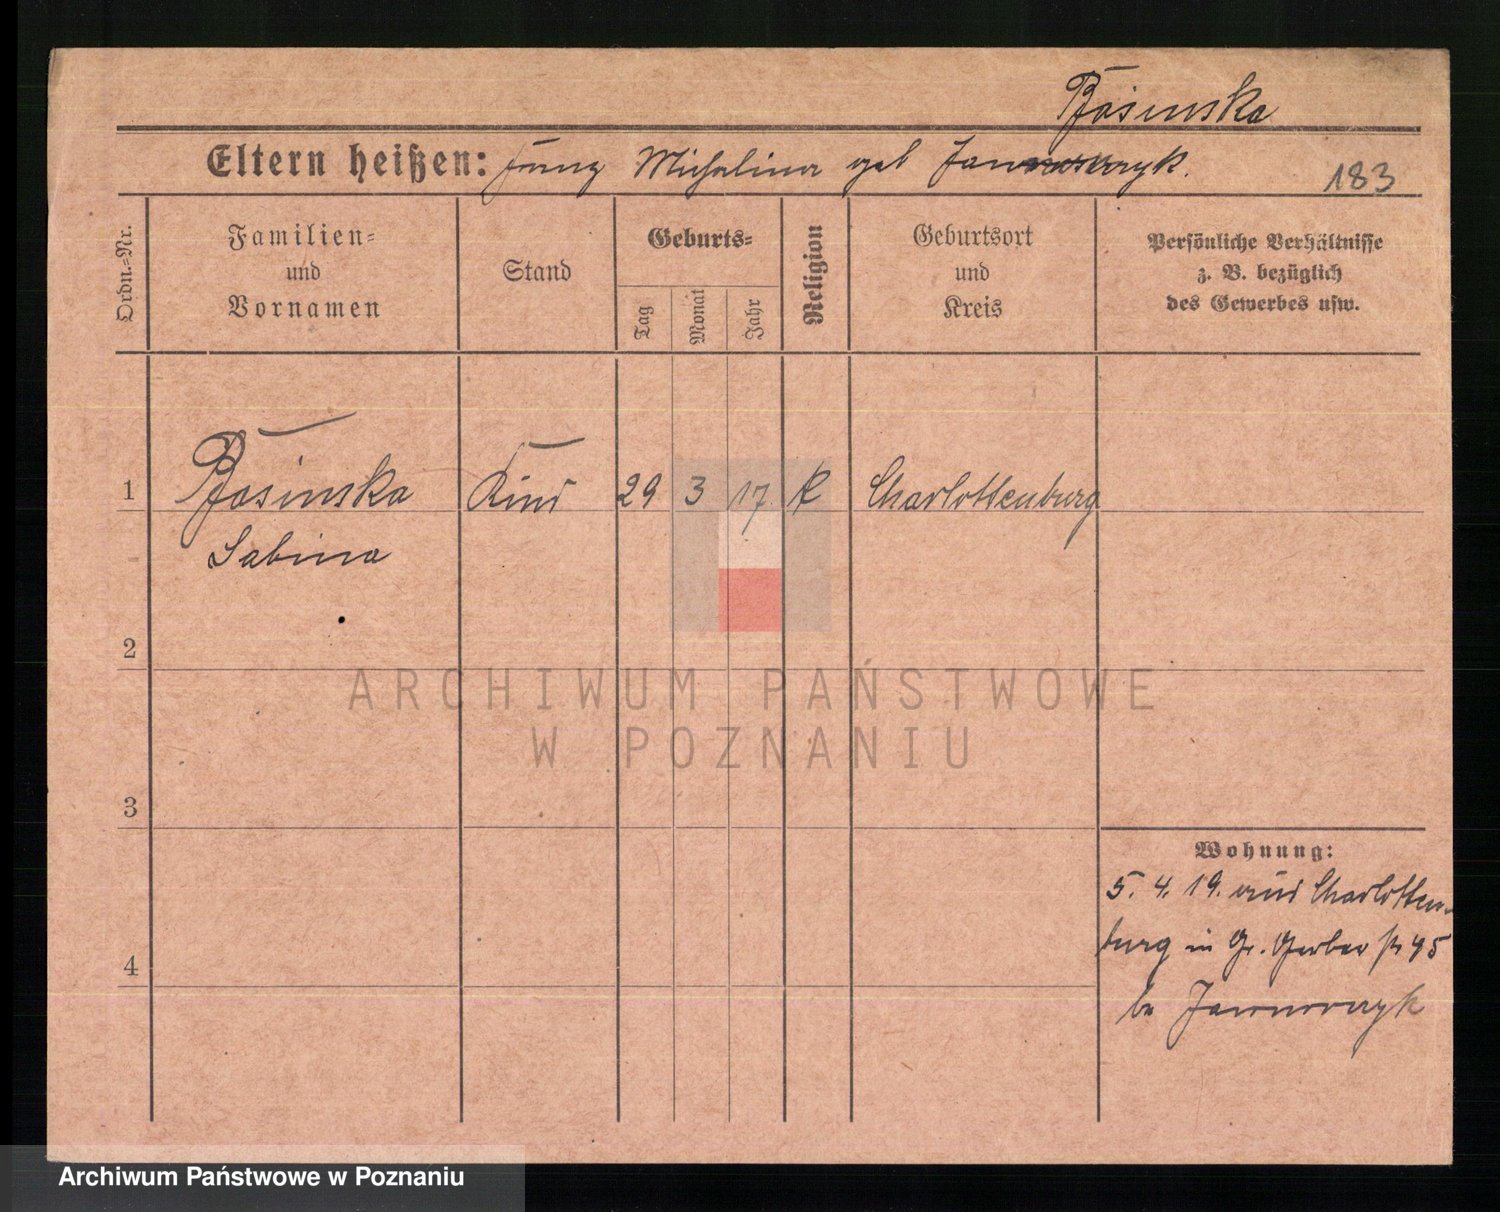 Bosinska
Eltern heißen: Franz Michalina geb
183
Ordn.-Nr.
Familien-
und
Vornamen
Stand
Geburts-
Tag
Monat
Jahr
Religion
Geburtsort
und
Kreis
Persönliche Verhältnisse
z. B. bezüglich
des Gewerbes usw.
1 Bosinska Kind 29 3 17 k Charlottenburg
Sabina
2
3
4
Wohnung:
5. 4. 19. aus Charlotten-
burg in Gr. Gerber str 45
be
ARCHIWUM PAŃSTWOWE
W POZNANIU
Archiwum Państwowe w Poznaniu